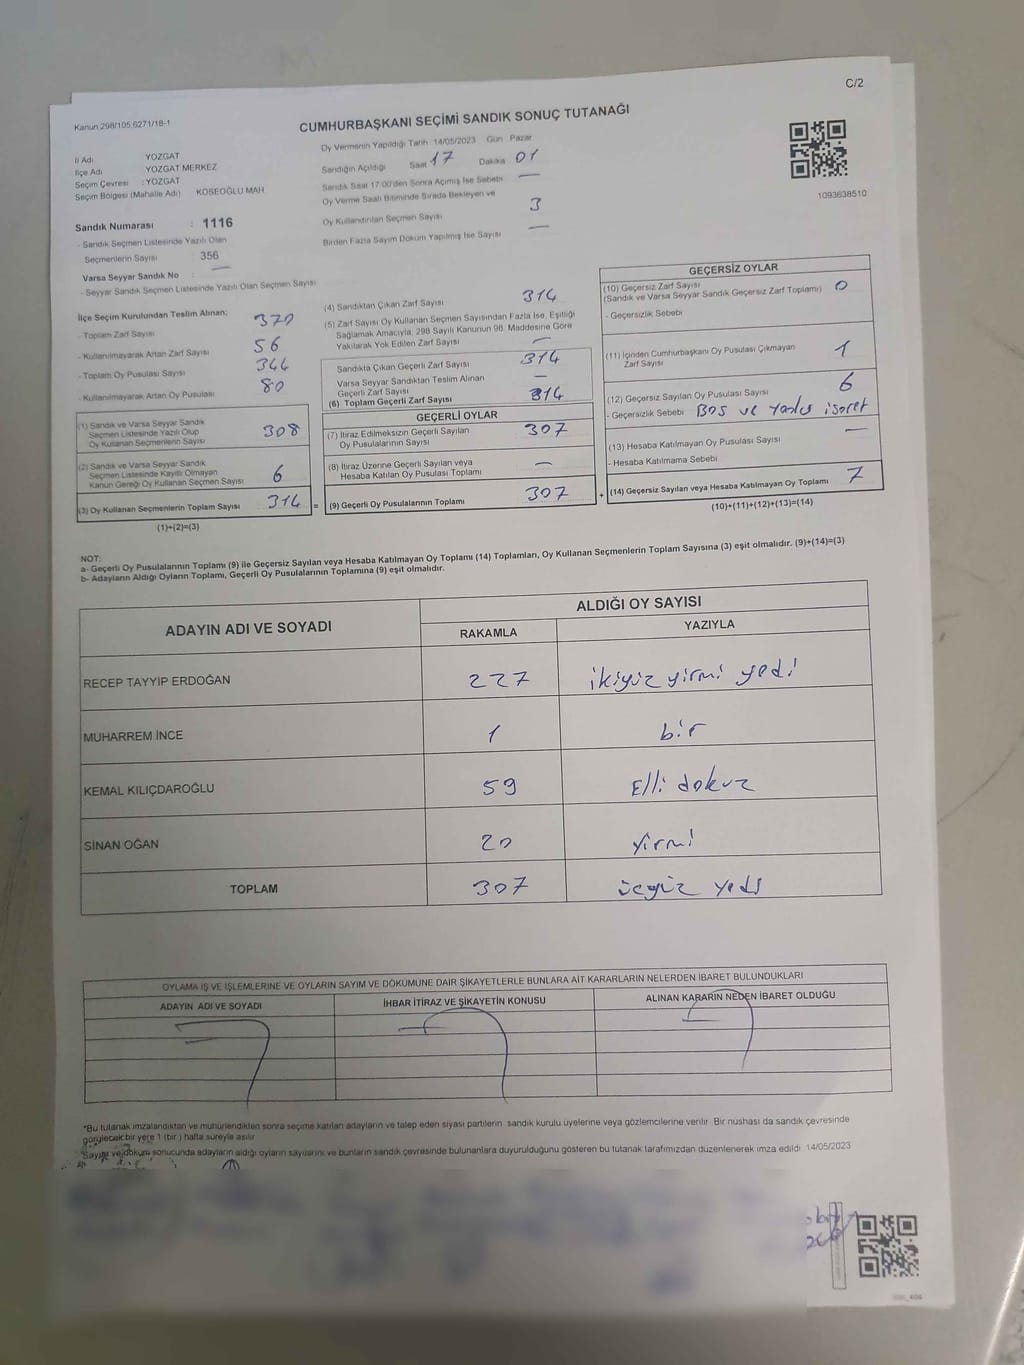 C/2
Kanun:298/105,6271/18-1
CUMHURBAŞKANI SEÇİMİ SANDIK SONUÇ TUTANAĞI
İl Adı YOZGAT
İlçe Adı YOZGAT MERKEZ
Seçim Çevresi : YOZGAT
Seçim Bölgesi (Mahalle Adı) KÖSEOĞLU MAH
Sandık Numarası : 1116
- Sandık Seçmen Listesinde Yazılı Olan
Seçmenlerin Sayısı 356
Varsa Seyyar Sandık No : —
- Seyyar Sandık Seçmen Listesinde Yazılı Olan Seçmen Sayısı
Oy Vermenin Yapıldığı Tarih :14/05/2023 Gün : Pazar
Sandığın Açıldığı Saat 17 Dakika 01
Sandık Saat 17.00'den Sonra Açılmış İse Sebebi —
Oy Verme Saati Bitiminde Sırada Bekleyen ve
Oy Kullandırılan Seçmen Sayısı 3
Birden Fazla Sayım Döküm Yapılmış İse Sayısı —
1093638510
İlçe Seçim Kurulundan Teslim Alınan;
- Toplam Zarf Sayısı 370
- Kullanılmayarak Artan Zarf Sayısı 56
- Toplam Oy Pusulası Sayısı 344
- Kullanılmayarak Artan Oy Pusulası 80
(1) Sandık ve Varsa Seyyar Sandık
Seçmen Listesinde Yazılı Olup
Oy Kullanan Seçmenlerin Sayısı 308
(2) Sandık ve Varsa Seyyar Sandık
Seçmen Listesinde Kayıtlı Olmayan,
Kanun Gereği Oy Kullanan Seçmen Sayısı 6
(3) Oy Kullanan Seçmenlerin Toplam Sayısı 314 =
(1)+(2)=(3)
(4) Sandıktan Çıkan Zarf Sayısı 314
(5) Zarf Sayısı Oy Kullanan Seçmen Sayısından Fazla İse, Eşitliği
Sağlamak Amacıyla, 298 Sayılı Kanunun 98. Maddesine Göre
Yakılarak Yok Edilen Zarf Sayısı —
Sandıkta Çıkan Geçerli Zarf Sayısı 314
Varsa Seyyar Sandıktan Teslim Alınan
Geçerli Zarf Sayısı —
(6) Toplam Geçerli Zarf Sayısı 314
GEÇERLİ OYLAR
(7) İtiraz Edilmeksizin Geçerli Sayılan
Oy Pusulalarının Sayısı 307
(8) İtiraz Üzerine Geçerli Sayılan veya
Hesaba Katılan Oy Pusulası Toplamı —
(9) Geçerli Oy Pusulalarının Toplamı 307 +
GEÇERSİZ OYLAR
(10) Geçersiz Zarf Sayısı
(Sandık ve Varsa Seyyar Sandık Geçersiz Zarf Toplamı) 0
- Geçersizlik Sebebi
(11) İçinden Cumhurbaşkanı Oy Pusulası Çıkmayan
Zarf Sayısı 1
(12) Geçersiz Sayılan Oy Pusulası Sayısı 6
- Geçersizlik Sebebi BOŞ ve Yanlış işaret
(13) Hesaba Katılmayan Oy Pusulası Sayısı —
- Hesaba Katılmama Sebebi
(14) Geçersiz Sayılan veya Hesaba Katılmayan Oy Toplamı 7
(10)+(11)+(12)+(13)=(14)
NOT:
a- Geçerli Oy Pusulalarının Toplamı (9) ile Geçersiz Sayılan veya Hesaba Katılmayan Oy Toplamı (14) Toplamları, Oy Kullanan Seçmenlerin Toplam Sayısına (3) eşit olmalıdır. (9)+(14)=(3)
b- Adayların Aldığı Oyların Toplamı, Geçerli Oy Pusulalarının Toplamına (9) eşit olmalıdır.
ADAYIN ADI VE SOYADI ALDIĞI OY SAYISI
RAKAMLA YAZIYLA
RECEP TAYYİP ERDOĞAN 227 ikiyüz yirmi yedi
MUHARREM İNCE 1 bir
KEMAL KILIÇDAROĞLU 59 Elli dokuz
SİNAN OĞAN 20 Yirmi
TOPLAM 307 üçyüz yedi
OYLAMA İŞ VE İŞLEMLERİNE VE OYLARIN SAYIM VE DÖKÜMÜNE DAİR ŞİKAYETLERLE BUNLARA AİT KARARLARIN NELERDEN İBARET BULUNDUKLARI
ADAYIN ADI VE SOYADI İHBAR İTİRAZ VE ŞİKAYETİN KONUSU ALINAN KARARIN NEDEN İBARET OLDUĞU
*Bu tutanak imzalandıktan ve mühürlendikten sonra seçime katılan adayların ve talep eden siyasi partilerin sandık kurulu üyelerine veya gözlemcilerine verilir. Bir nüshası da sandık çevresinde
görülecek bir yere 1 (bir ) hafta süreyle asılır
Sayım ve döküm sonucunda adayların aldığı oyların sayılarını ve bunların sandık çevresinde bulunanlara duyurulduğunu gösteren bu tutanak tarafımızdan düzenlenerek imza edildi. 14/05/2023